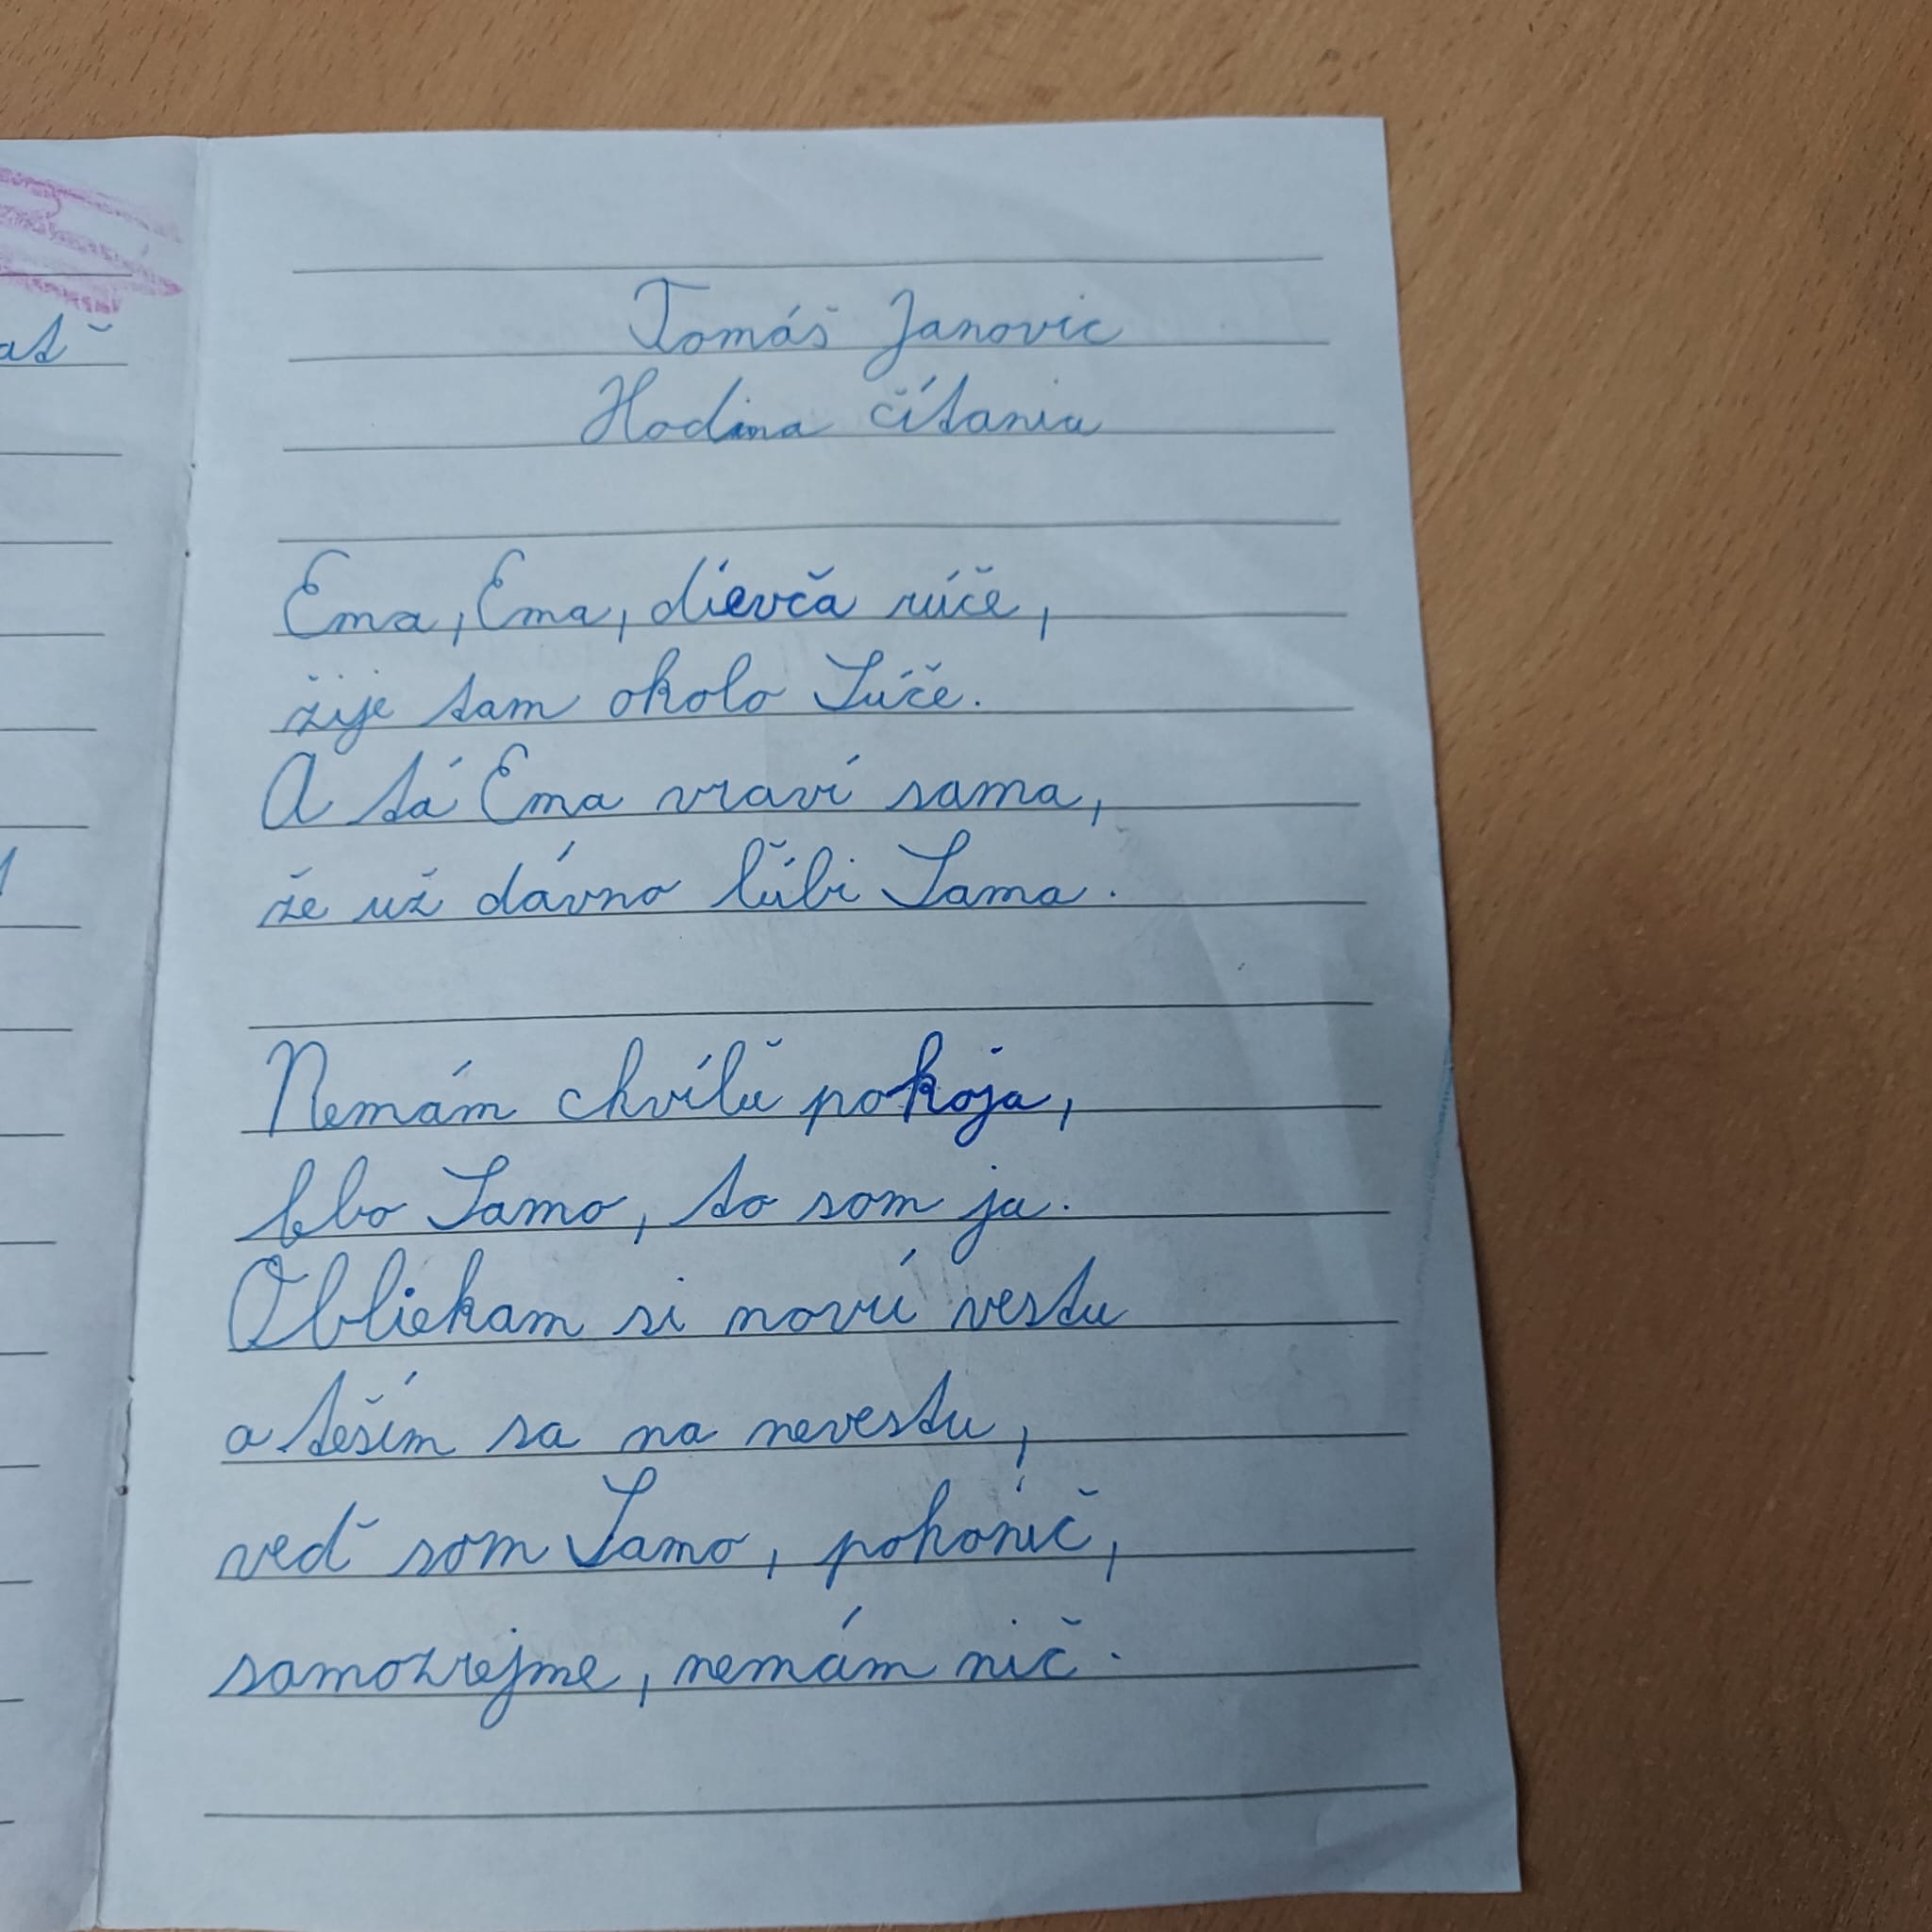 Tomáš Janovic
Hodina čítania
Ema, Ema, dievča rúče,
žije tam okolo Súče.
A tá Ema vraví sama,
že už dávno ľúbi Sama.
Nemám chvíľu pokoja,
Samo, to som ja.
Obliekam si novú vestu
a teším sa na nevestu,
veď som Samo, pohonič,
samozrejme, nemám nič.